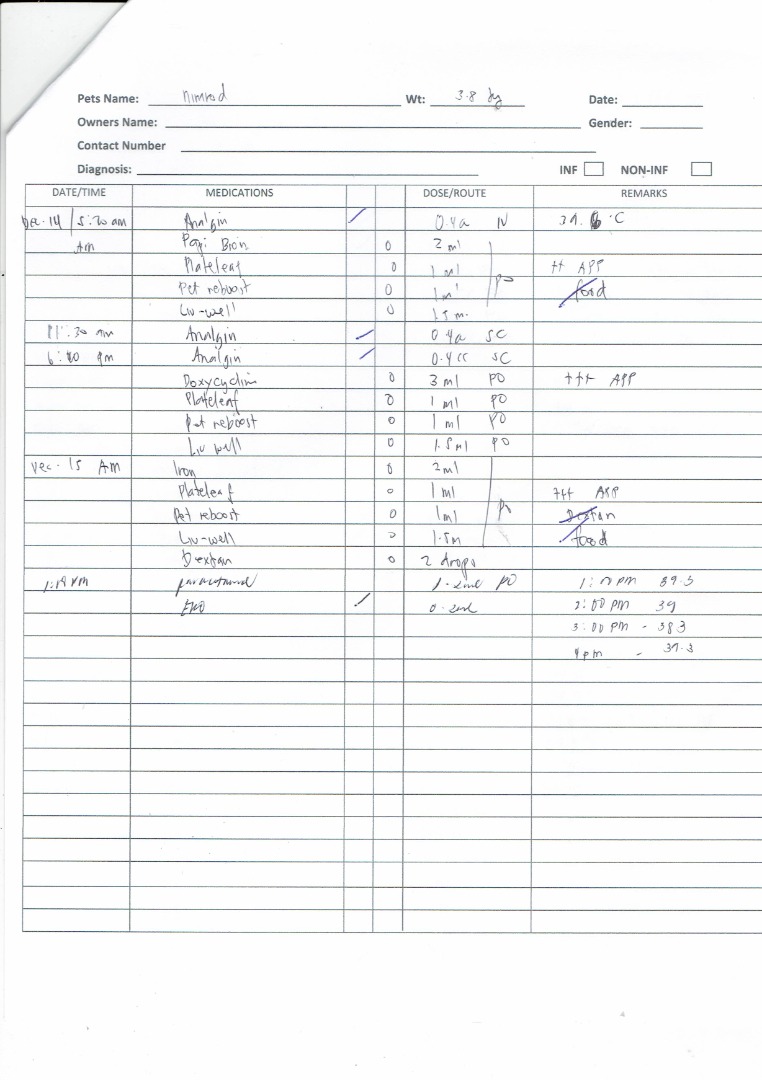 Pets Name: Nimrod Wt: 3.8 kg Date:
Owners Name: Gender:
Contact Number
Diagnosis: INF NON-INF
DATE/TIME MEDICATIONS DOSE/ROUTE REMARKS
Dec. 14 / 5:20 am Analgin 0.4cc IV 39. °C
Am Papi Bron 0 2 ml
Plateleaf 0 1 ml PO ++ APP
Pet reboost 0 1 ml food
Liv-well 0 1.5 m.
11:30 am Analgin 0.4cc SC
6:00 pm Analgin 0.4 cc SC
Doxycyclin 0 3 ml PO +++ APP
Plateleaf 0 1 ml PO
Pet reboost 0 1 ml PO
Liv well 0 1.5 ml PO
Dec. 15 Am Iron 0 2ml
Plateleaf 0 1 ml PO +++ APP
Pet reboost 0 1ml Dextran
Liv-well 0 1.5m food
Dextran 0 2 drops
paracetamol PO 1: PM 39.3
2:00 PM 39
3:00 PM - 38.3
4 pm - 37.3